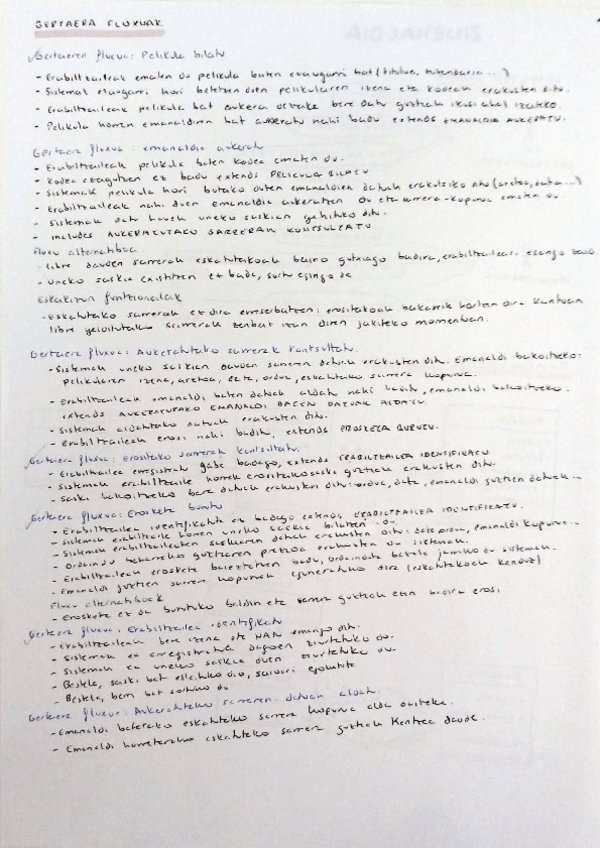 GERTAERA FLUXUAK
Gertaeren fluxua: Pelikula bilatu
- Erabiltzaileak ematen du pelikula baten ezaugarri bat (titulua, zuzendaria...)
- Sistemak ezaugarri hori betetzen duen pelikularen izena eta kodeak erakusten ditu.
- Erabiltzaileak pelikula bat aukera dezake bere datu guztiak ikusi ahal izateko.
- Pelikula horren emanaldiren bat aukeratu nahi badu extends EMANALDIA AUKERATU.
Gertaera fluxua: emanaldia aukeratu
- Erabiltzaileak pelikula baten kodea ematen du.
- Kodea ezagutzen ez badu extends PELIKULA BILATU
- Sistemak pelikula hori botako duten emanaldien datuak erakutsiko ditu (aretoa, data...)
- Erabiltzaileak nahi duen emanaldia aukeratzen du eta sarrera-kopurua ematen du
- Sistemak datu hauek uneko saskian gehituko ditu.
- includes AUKERATUTAKO SARRERAK KONTSULTATU
Fluxu alternatiboa
- libre dauden sarrerak eskatutakoak baino gutxiago badira, erabiltzaileari esango zaio.
- Uneko saskia existitzen ez bada, sortu egingo da
Eskakizun funtzionalak
- Eskatutako sarrerak ez dira erreserbatzen: erositakoak bakarrik hartzen dira kontuan
libre gelditutako sarrerak zenbat izan diren jakiteko momentuan.
Gertaera fluxua: Aukeratutako sarrerak kontsultatu.
- Sistemak uneko saskian dauden sarreren datuak erakusten ditu. Emanaldi bakoitzeko:
pelikularen izena, aretoa, data, ordua, eskatutako sarrera kopurua.
- Erabiltzaileak emanaldi baten datuak aldatu nahi baditu, emanaldi bakoitzeko
extends AUKERATUTAKO EMANALDI BATEN DATUAK ALDATU.
- Sistemak aldatutako datuak erakusten ditu.
- Erabiltzaileak erosi nahi baditu, extends EROSKETA BURUTU.
Gertaera fluxua: erositako sarrerak kontsultatu.
- Erabiltzailea erregistratu gabe badago, extends ERABILTZAILEA IDENTIFIKATU.
- Sistemak erabiltzaile horrek erositako saski guztiak erakusten ditu.
- Saski bakoitzeko bere datuak erakusten ditu: ordua, data, emanaldi guztien datuak...
Gertaera fluxua: Erosketa burutu
- Erabiltzailea identifikatu ez badago extends ERABILTZAILEA IDENTIFIKATU.
- Sistemak erabiltzaile horren uneko saskia bilatzen du.
- Sistemak erabiltzailearen saskiaren datuak erakusten ditu: data, ordua, emanaldi kopurua...
- Ordaindu beharreko guztiaren prezioa erakusten du sistemak.
- Erabiltzaileak erosketa baieztatzen badu, ordainduta bezala jarriko du sistemak.
- Emanaldi guztien sarrera kopuruak eguneratuko dira (eskatutakoak kenduz)
Fluxu alternatiboak
- Erosketa ez da burutuko baldin eta sarrera guztiak ezin badira erosi
Gertaera fluxua: Erabiltzailea identifikatu
- Erabiltzaileak bere izena eta NAN emango ditu.
- Sistemak ea erregistratuta dagoen ziurtatuko du.
- Sistemak ea uneko saskia duen ziurtatuko du.
- Bestela, saski bat esleituko dio,
- Bestela, berri bat sortuko du
Gertaera fluxua: Aukeratutako sarreren datuak aldatu.
- Emanaldi baterako eskatutako sarrera kopurua alda daiteke.
- Emanaldi horretarako eskatutako sarrera guztiak kentzea daude.